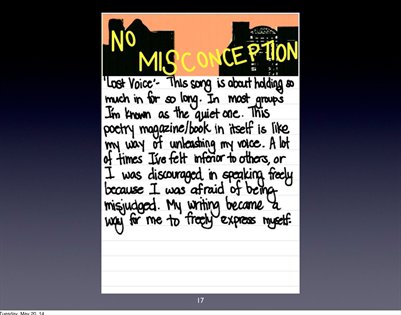 NO
MISCONCEPTION
"Lost Voice"- This song is about holding so
much in for so long. In most groups
I'm known as the quiet one. This
poetry magazine/book in itself is like
my way of unleashing my voice. A lot
of times I've felt inferior to others, or
I was discouraged in speaking freely
because I was afraid of being
misjudged. My writing became a
way for me to freely express myself.
17
Tuesday, May 20, 14